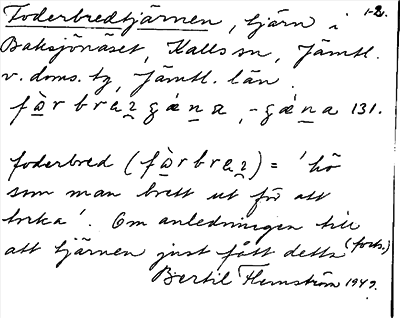 Foderbredtjärnen, tjärn i 1-2.
Baksjönäset, Kalls sn, Jämtl.
v. doms. tg, Jämtl. län.
fòrbrezgɑ́nɑ, -gɑ́nɑ 131.
foderbred (fòrbrez) = 'hö
som man brett ut för att
torka'. Om anledningen till
att tjärnen just fått detta (forts.)
Bertil Flemström 1949.